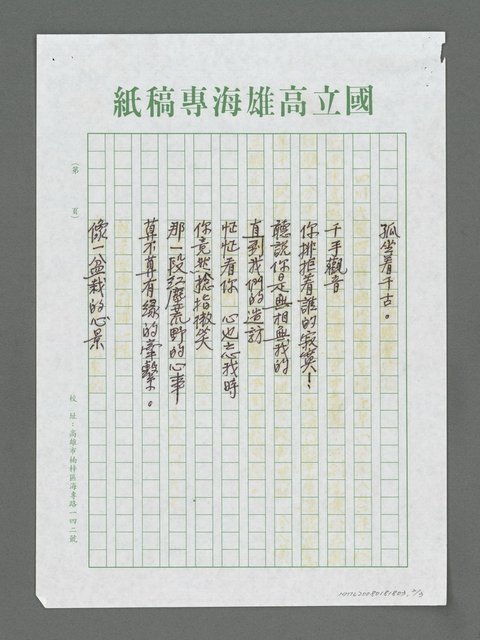 國立高雄海專稿紙
孤坐着千古。
千手觀音
你排拒着誰的寂寞！
聽說你是無相無我的
直到我們的造訪
怔怔看你 心也忘我時
你竟然捻指微笑
那一段紅塵荒野的心事
算不算有緣的牽繫。
像一盆栽的心景
（第 頁）
校 址：高雄市楠梓區海專路一四二號